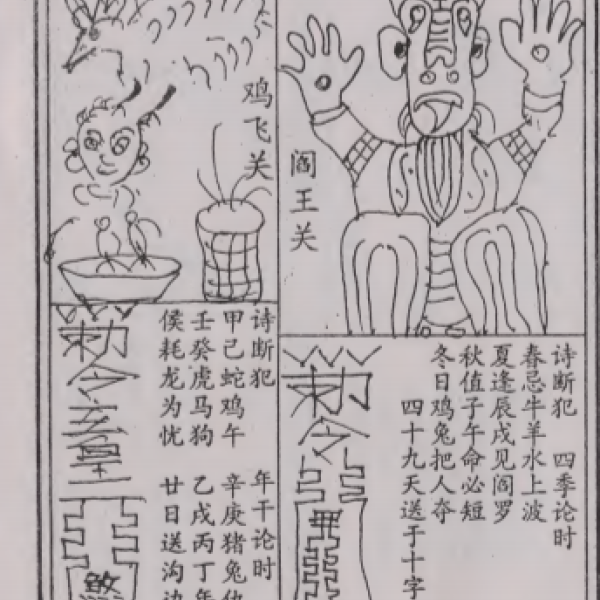 阎王关
诗断犯 四季论时
春忌牛羊水上波
夏逢辰戌见阎罗
秋值子午命必短
冬日鸡兔把人夺
四十九天送于十字
敕令
鸡飞关
诗断犯 年干论时
甲己蛇鸡午 辛庚猪兔
壬癸虎马狗 乙戌丙丁
侯耗龙为忧 廿日送沟
敕令
煞